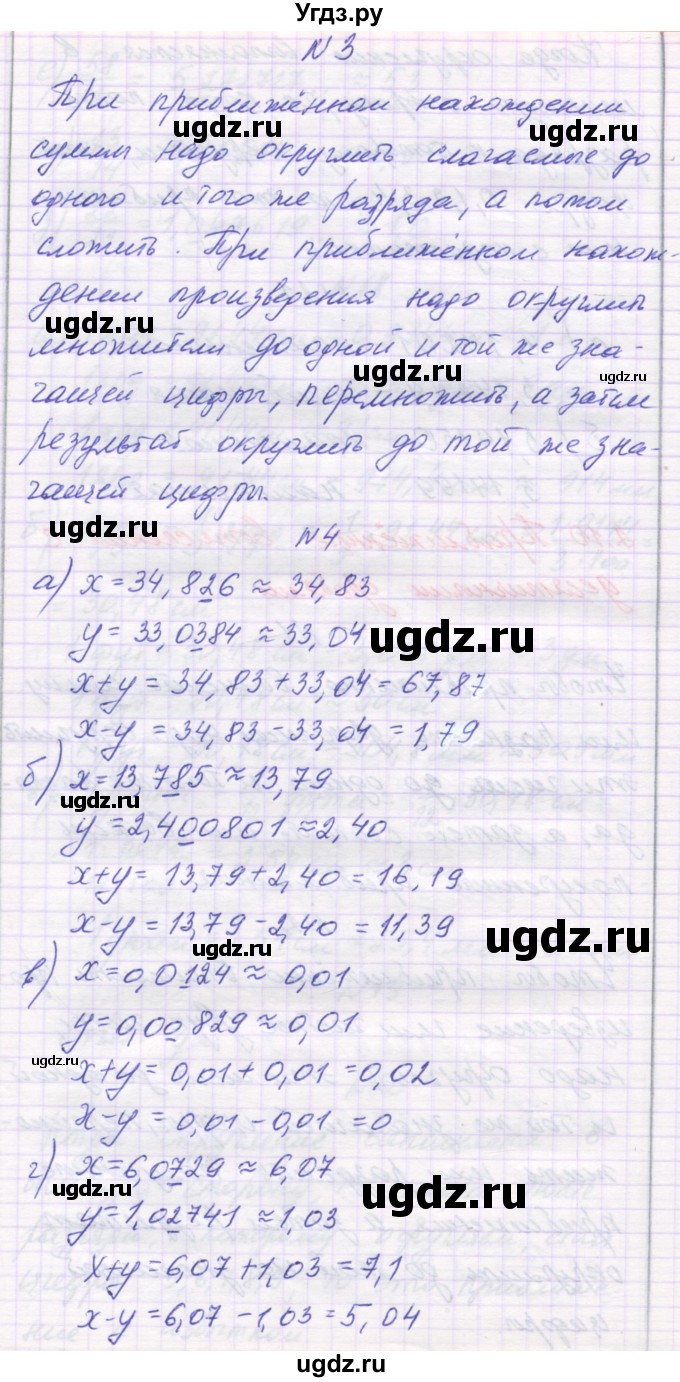 Угдз.ру
N 3
При приближённом нахождении
ugdz.ru ugdz.ru
суммы надо округлить слагаемые до
одного и того же разряда, а потом
сложить. При приближённом нахож-
ugdz.ru
дении произведения надо округлить
ugdz.ru
множители до одной и той же зна-
ugdz.ru ugdz.ru
чащей цифры, перемножить, а затем
результат округлить до той же зна-
чащей цифры.
ugdz.ru
N4
а) x = 34,826 ≈ 34,83
y = 33,0384 ≈ 33,04
ugdz.ru
x+y = 34,83+33,04=67,87
x-y = 34,83-33,04=1,79
б) x=13,785≈13,79
ugdz.ru
y=2,400801≈2,40
x+y= 13,79+2,40=16,19
x-y=13,79-2,40=11,39
ugdz.ru ugdz.ru
в) x=0,0124≈0,01
y=0,00829≈0,01
ugdz.ru
x+y=0,01+0,01=0,02
x-y=0,01-0,01=0
г) x=6,0729≈6,07
ugdz.ru
y=1,02741≈1,03
x+y=6,07+1,03=7,1
x-y=6,07-1,03=5,04
ugdz.ru